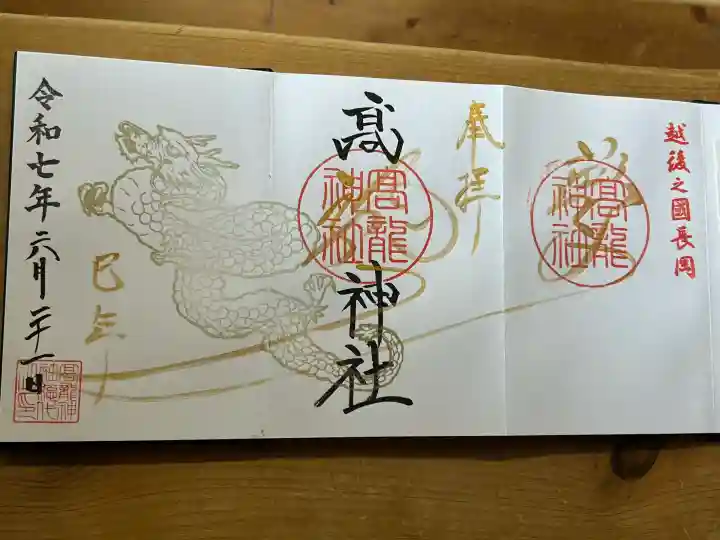 越後之國長岡
髙龍
神社
奉拝
髙
神社
髙龍
神社
巳年
令和七年六月二十一日